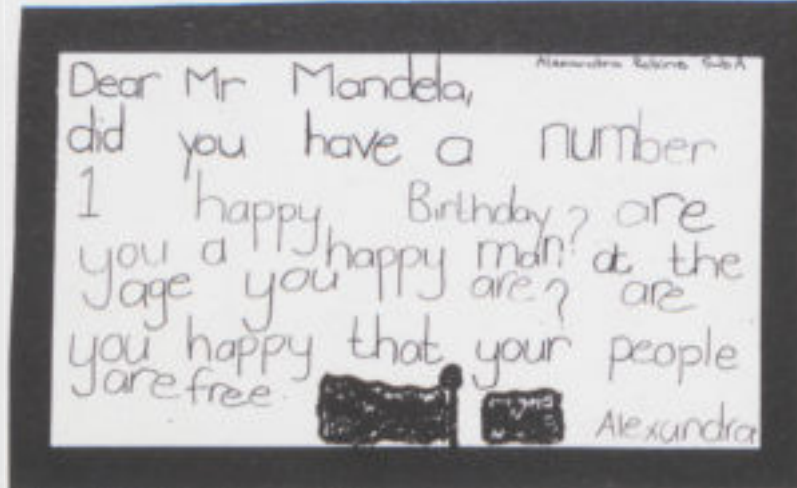 Alexandra Sub A
Dear Mr Mandela,
did you have a number
1 happy Birthday? are
you a happy man? at the
age you are? are
you happy that your people
are free
Alexandra